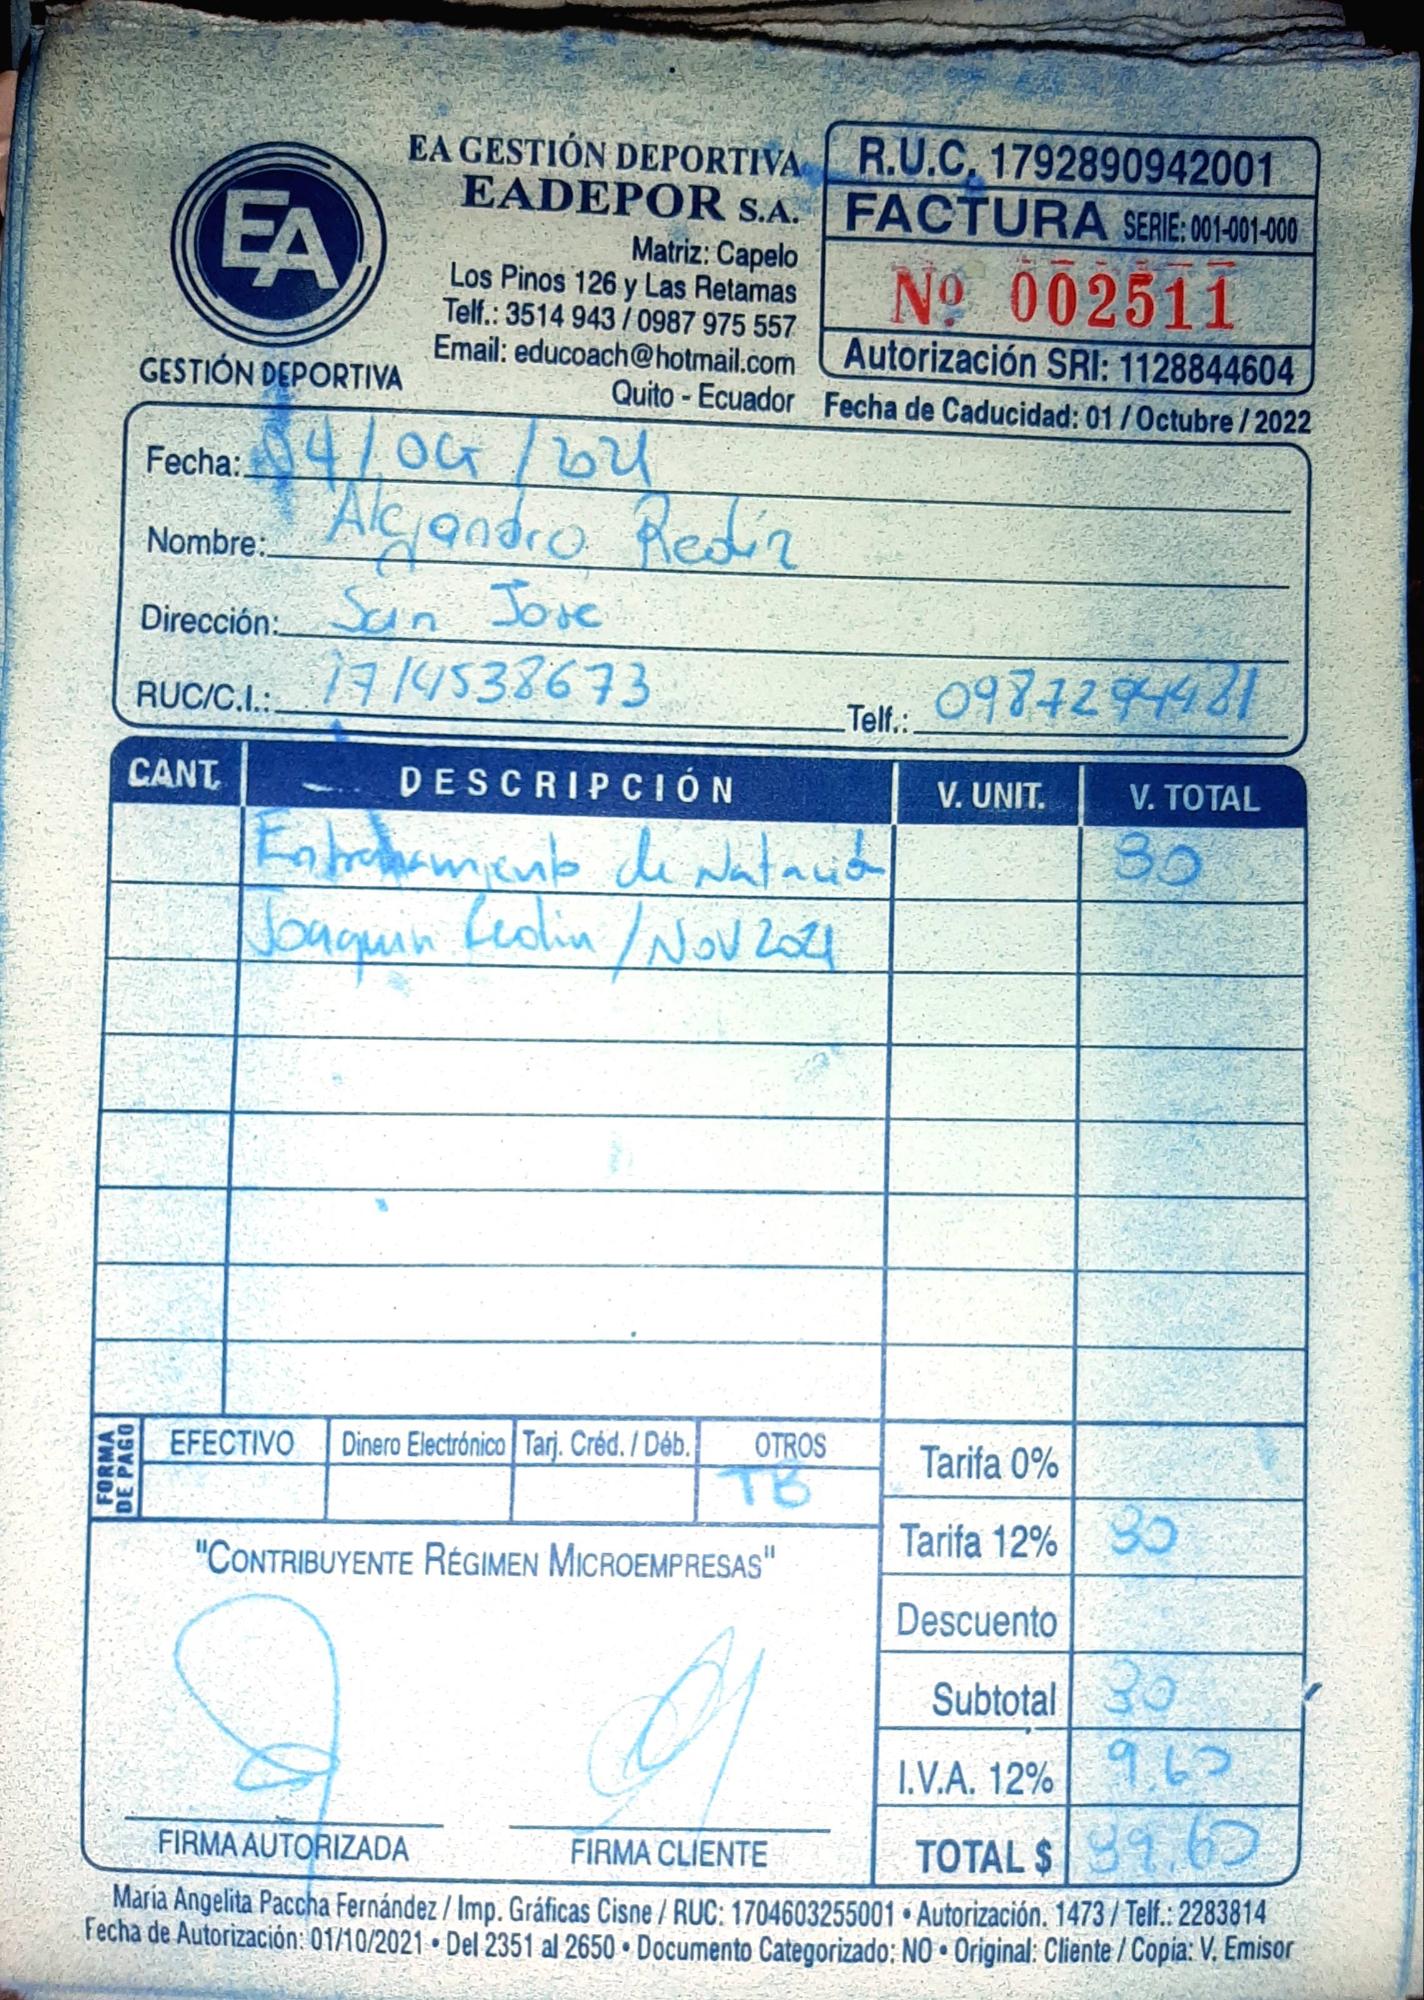 EA GESTIÓN DEPORTIVA
EADEPOR S.A.
Matriz: Capelo
Los Pinos 126 y Las Retamas
Telf.: 3514 943 / 0987 975 557
Email: educoach@hotmail.com
Quito - Ecuador
EA
GESTIÓN DEPORTIVA
R.U.C. 1792890942001
FACTURA SERIE: 001-001-000
Nº 002511
Autorización SRI: 1128844604
Fecha de Caducidad: 01 / Octubre / 2022
Fecha: 04/Oct/2021
Nombre: Alejandro Redín
Dirección: San Jose
RUC/C.I.: 1714538673 Telf.: 0987294481
CANT. DESCRIPCIÓN V. UNIT. V. TOTAL
Entrenamiento de Natación
Joaquin Redin / Nov 2021
FORMA DE PAGO
EFECTIVO Dinero Electrónico Tarj. Créd. / Déb. OTROS
TB
Tarifa 0%
Tarifa 12%
Descuento
Subtotal
I.V.A. 12% 9.60
TOTAL $
"CONTRIBUYENTE RÉGIMEN MICROEMPRESAS"
FIRMA AUTORIZADA FIRMA CLIENTE
María Angelita Paccha Fernández / Imp. Gráficas Cisne / RUC: 1704603255001 • Autorización. 1473 / Telf.: 2283814
Fecha de Autorización: 01/10/2021 • Del 2351 al 2650 • Documento Categorizado: NO • Original: Cliente / Copia: V. Emisor